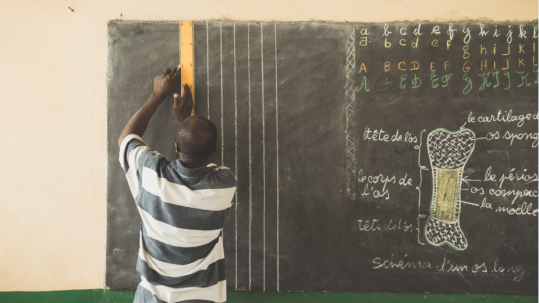 a b c d e f g h i j k l
a b c d e f g h i j k
A B C D E F G H I J K
le cartilage d
tête de l'os
os spong
le corps de
l'os
le périos
os compac
la moëlle
tête de l'os
Schéma d'un os long